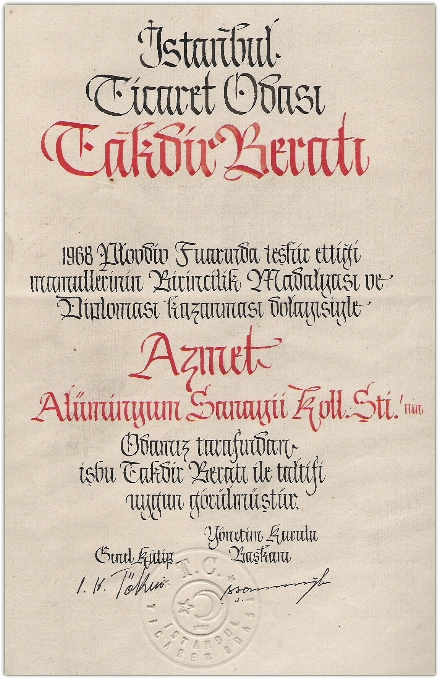 İstanbul
Ticaret Odası
Takdir Beratı
1968 Plovdiv Fuarında teşhir ettiği
mamullerinin Birincilik Madalyası ve
Diploması kazanması dolayısiyle
Azmet
Alüminyum Sanayii Koll. Şti.'nin
Odamız tarafından
işbu Takdir Beratı ile taltifi
uygun görülmüştür.
Yönetim Kurulu
Genel Kâtip Başkanı
T.C.
İSTANBUL
TİCARET ODASI